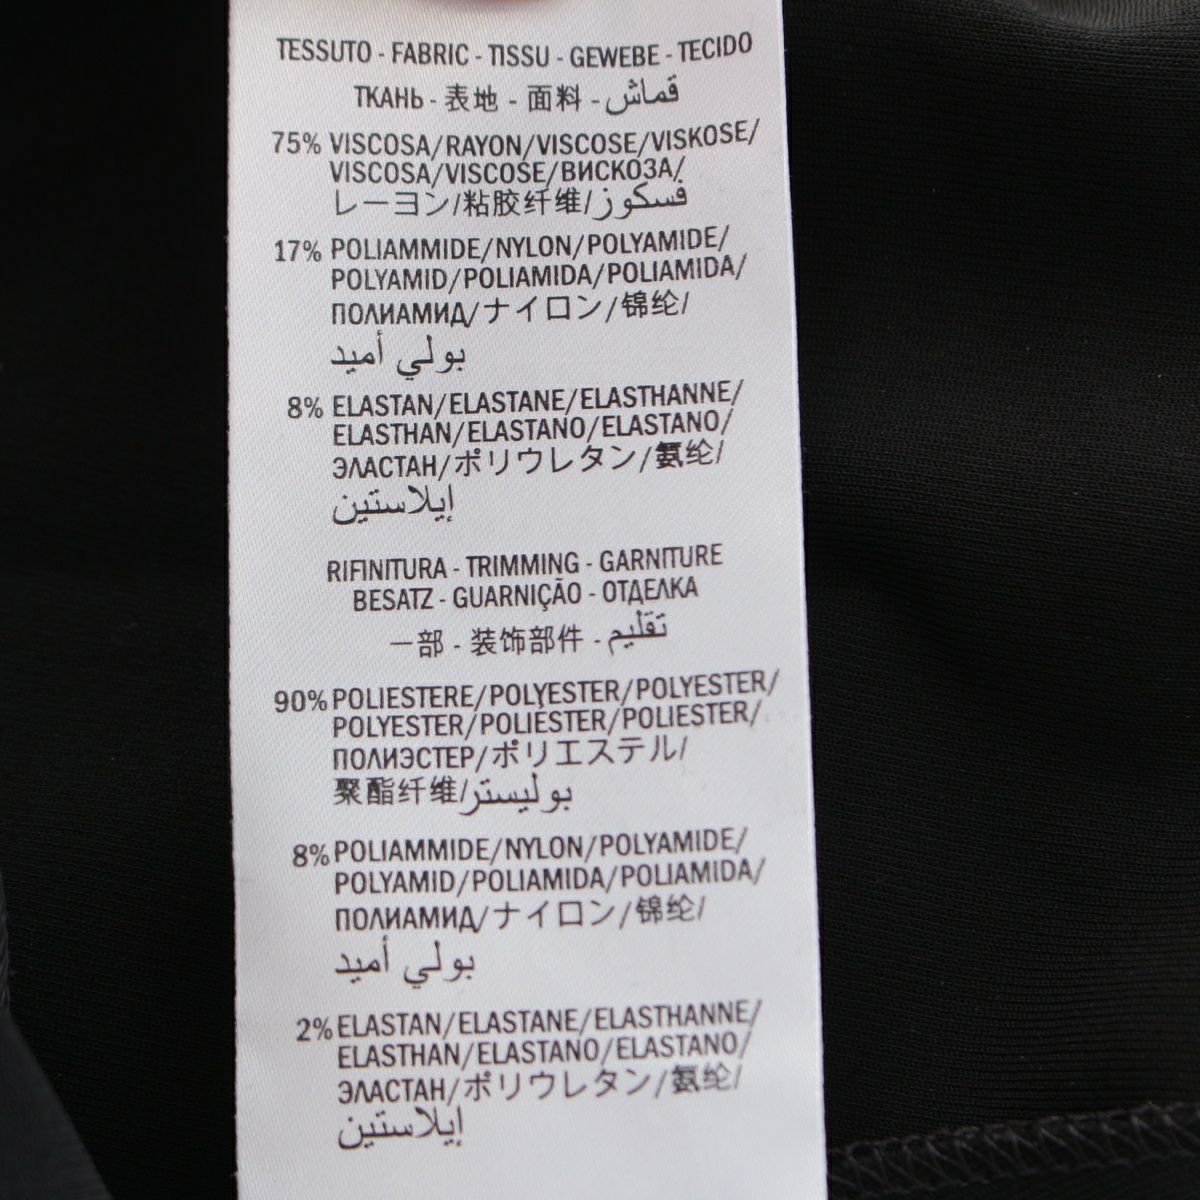 TESSUTO - FABRIC - TISSU - GEWEBE - TECIDO
ТКАНЬ - 表地 - 面料 - قماش
75% VISCOSA/RAYON/VISCOSE/VISKOSE/
VISCOSA/VISCOSE/ВИСКОЗА/
レーヨン/粘胶纤维/فسكوز
17% POLIAMMIDE/NYLON/POLYAMIDE/
POLYAMID/POLIAMIDA/POLIAMIDA/
ПОЛИАМИД/ナイロン/锦纶/
بولي أميد
8% ELASTAN/ELASTANE/ELASTHANNE/
ELASTHAN/ELASTANO/ELASTANO/
ЭЛАСТАН/ポリウレタン/氨纶/
إيلاستين
RIFINITURA - TRIMMING - GARNITURE
BESATZ - GUARNIÇÃO - ОТДЕЛКА
一部 - 装饰部件 - تقليم
90% POLIESTERE/POLYESTER/POLYESTER/
POLYESTER/POLIÉSTER/POLIESTER/
ПОЛИЭСТЕР/ポリエステル/
聚酯纤维/بوليستر
8% POLIAMMIDE/NYLON/POLYAMIDE/
POLYAMID/POLIAMIDA/POLIAMIDA/
ПОЛИАМИД/ナイロン/锦纶/
بولي أميد
2% ELASTAN/ELASTANE/ELASTHANNE/
ELASTHAN/ELASTANO/ELASTANO/
ЭЛАСТАН/ポリウレタン/氨纶/
إيلاستين